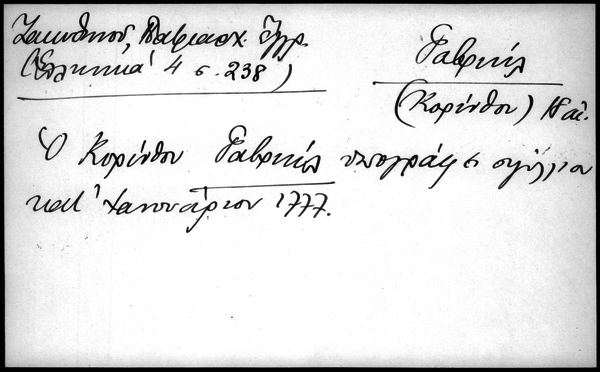 Ζακυθηνοῦ, Πατριαρχ. Ἔγγρ.
(Ἑλληνικά 4 σ. 238)
Γαβριήλ
(Κορίνθου) 18 αἰ.
Ὁ Κορίνθου Γαβριήλ ὑπογράφει σιγίλλιον
κατ' Ἰανουάριον 1777.